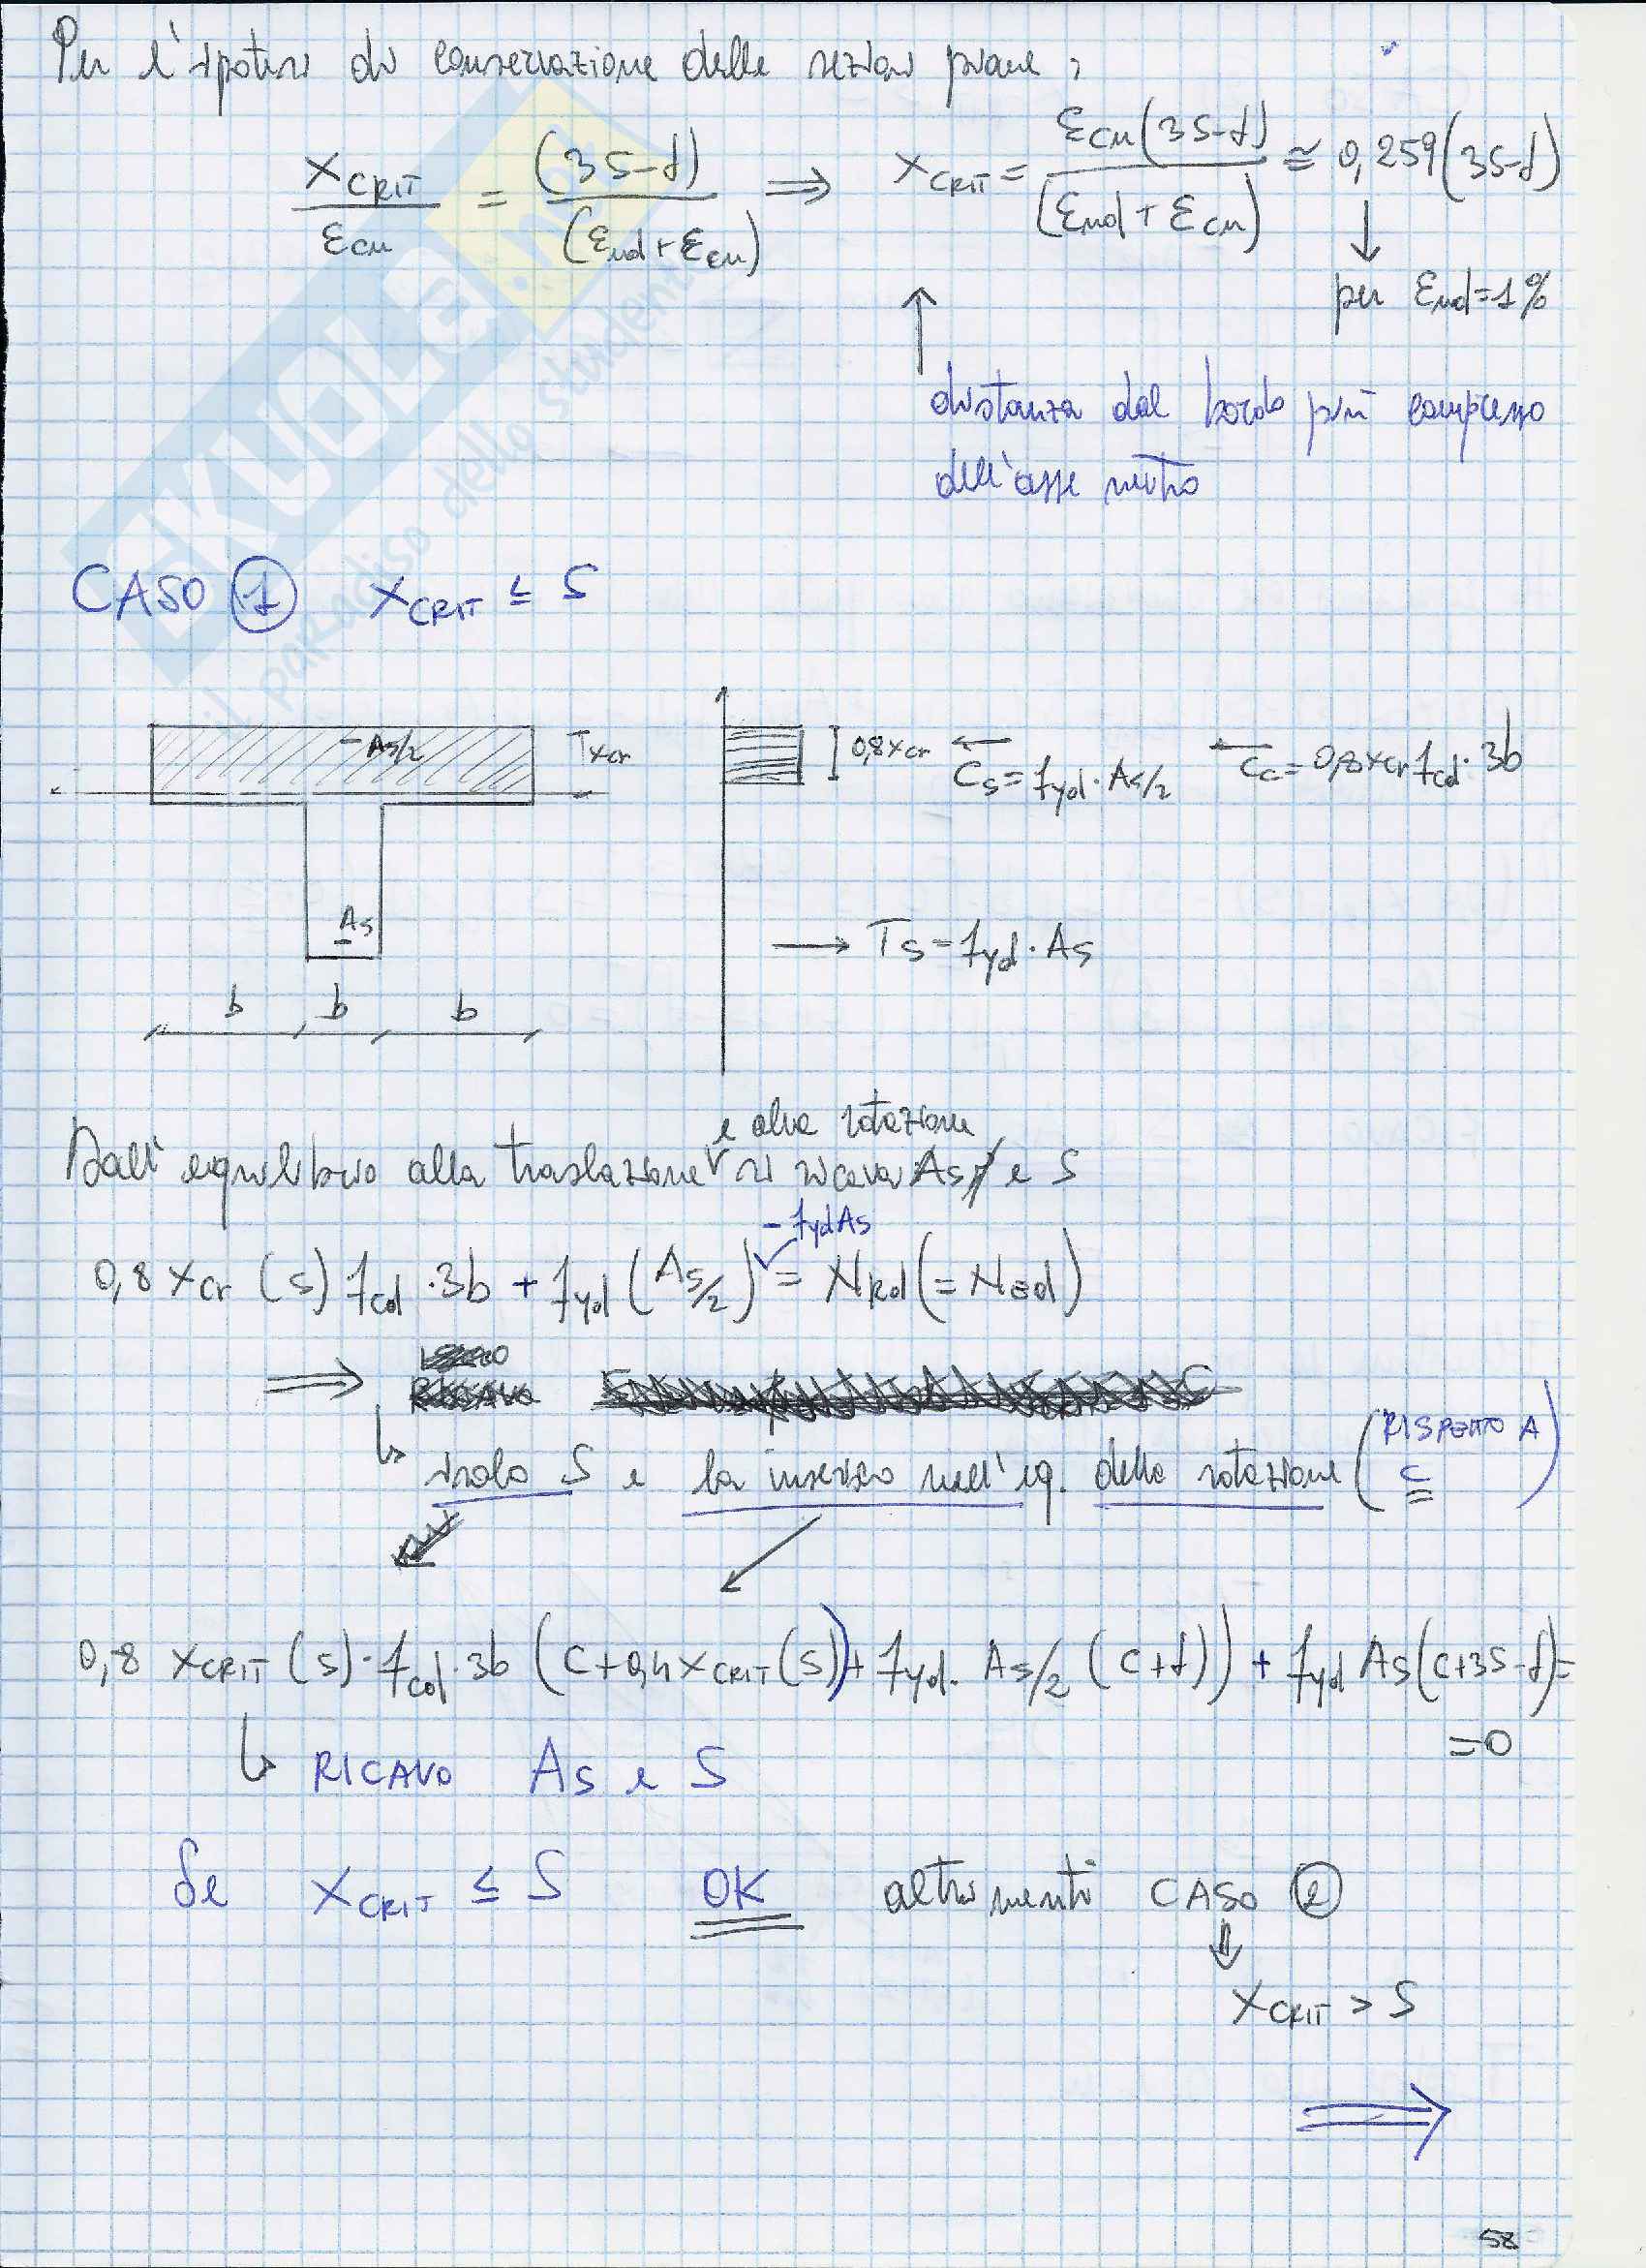 Per l'ipotesi di conservazione delle sezioni piane,
xCRIT / εcu = (3S-d) / (εud+εcu) ⇒ xCRIT = εcu(3S-d) / (εud+εcu) ≅ 0,259(3S-d)
↓
per εud=1%
↑
distanza dal bordo più compresso
dell'asse neutro
SKUOLA.net
il paradiso dello studente
CASO ① xCRIT ≤ S
As/2
xcr
0,8xcr
← Cs = fyd·As/2
← Cc = 0,8xcr fcd·3b
As
→ Ts = fyd·As
b b b
Dall'equilibrio alla traslazione e alla rotazione si ricava As e S
0,8 xcr (S) fcd·3b + fyd (As/2) - fydAs = NRd (= NEd)
⇒
↳ isolo S e la inserisco nell'eq. della rotazione (RISPETTO A C)
0,8 xCRIT (S)·fcd·3b (C+0,4xCRIT(S)) + fyd·As/2 (C+d)) + fyd As(C+3S-d)=
=0
↳ RICAVO As e S
Se xCRIT ≤ S OK altrimenti CASO ②
⇓
xCRIT > S
⇒
58